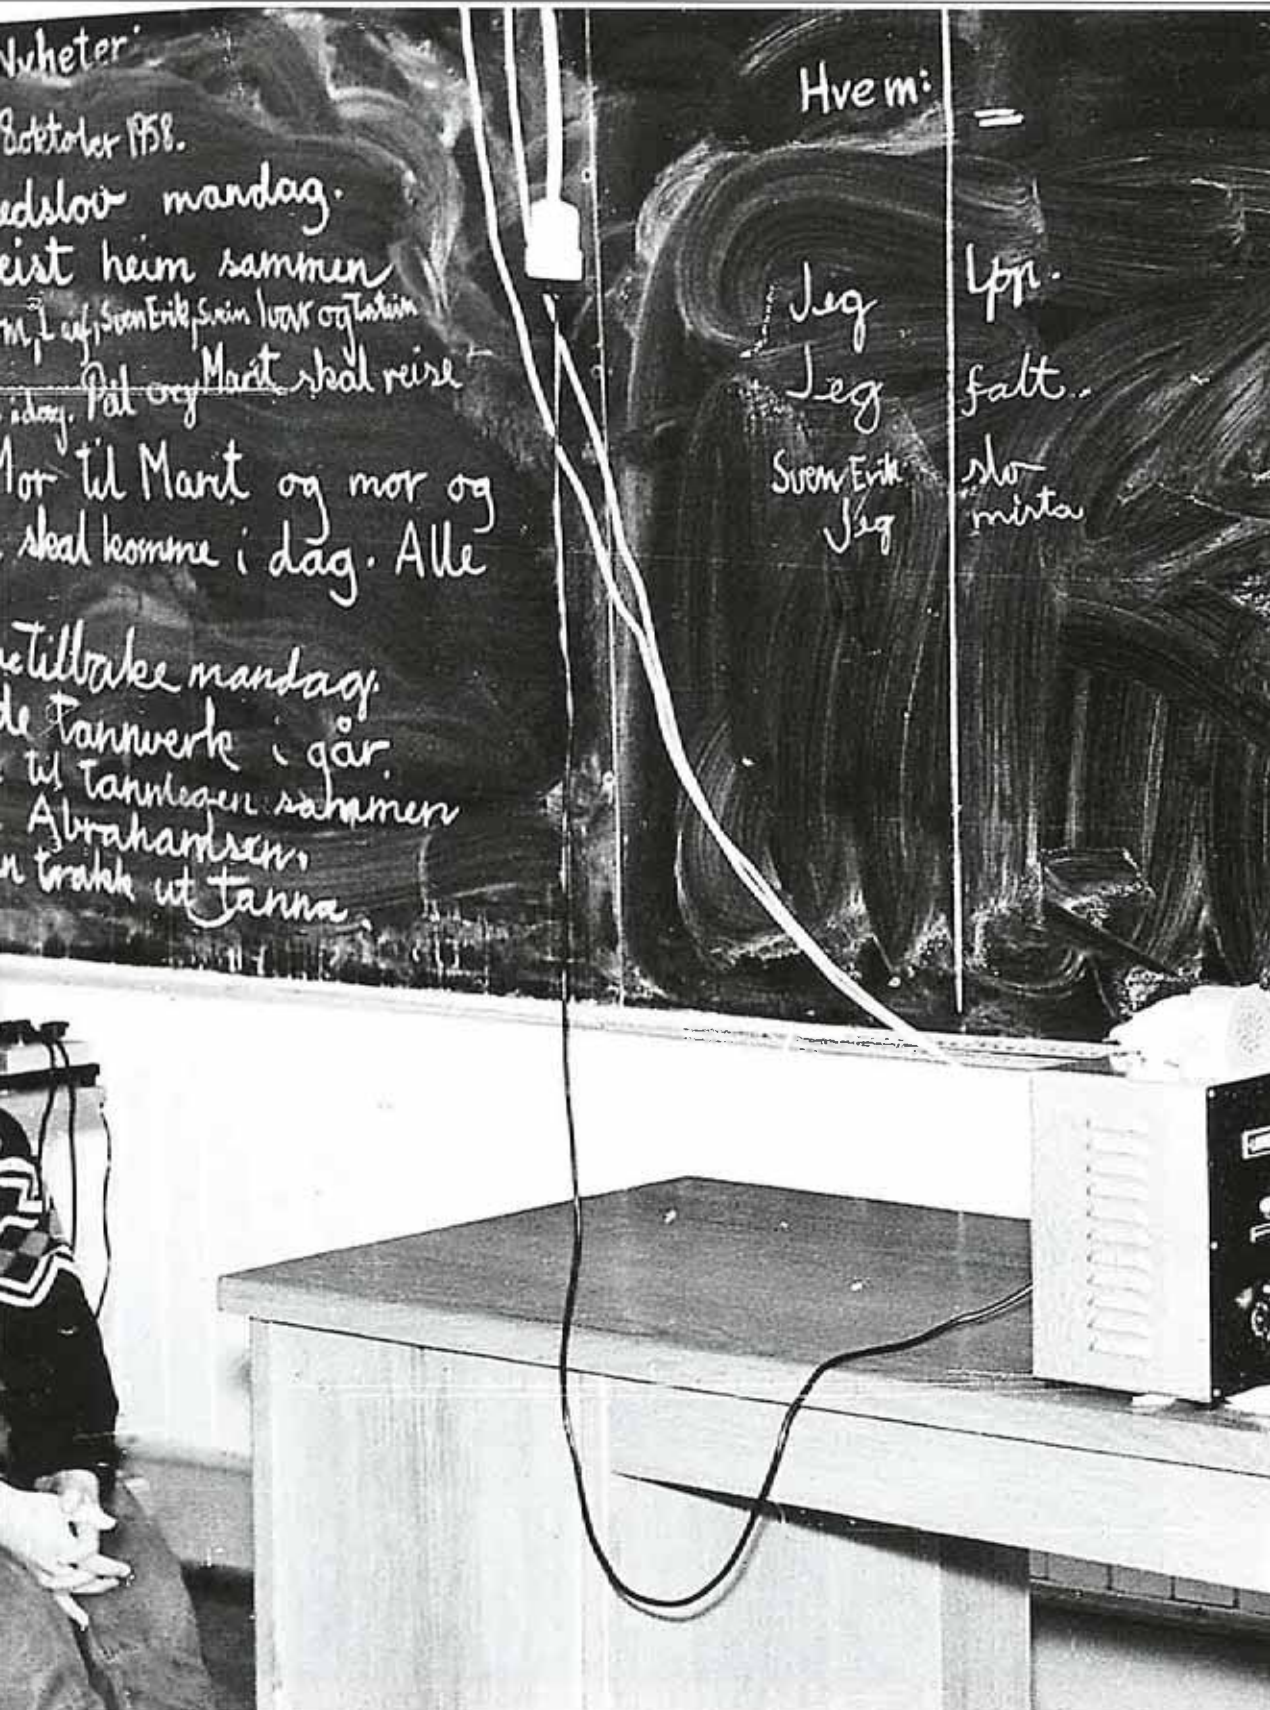 Nyheter:
8 oktober 1958.
edslov mandag.
eist heim sammen
m, Leif, Sven Erik, Svein Ivar og
i dag. Pål og Marit skal reise
Mor til Marit og mor og
skal komme i dag. Alle
tilbake mandag.
de tannverk i går.
til tannlegen sammen
Abrahamsen.
n trakk ut tanna.
Hvem: =
Jeg løp.
Jeg falt.
Sven Erik slo
Jeg mista